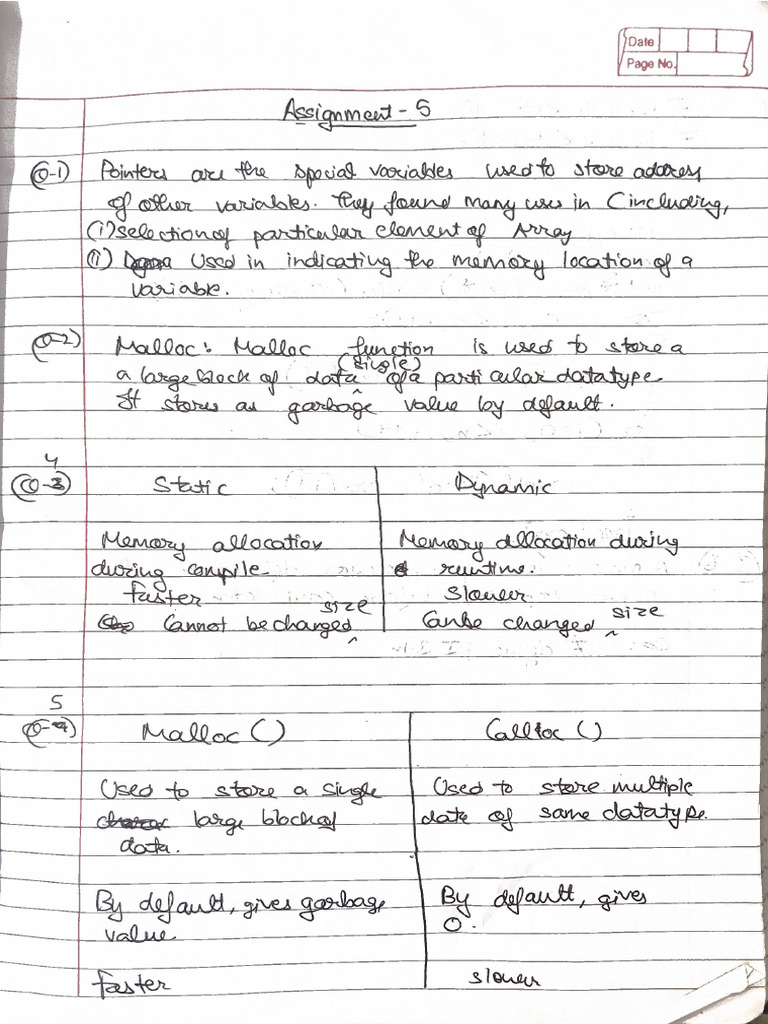 Date
Page No.
Assignment - 5
Q-1) Pointers are the special variables used to store address
of other variables. They found many uses in C including,
(i) selection of particular element of Array
(ii) Used in indicating the memory location of a
variable.
Q-2) Malloc: Malloc function is used to store a
(single)
a large block of data of a particular datatype.
It stores as garbage value by default.
4
Q-3) Static Dynamic
Memory allocation Memory allocation during
during compile. runtime.
faster slower
size size
Cannot be changed Can be changed
5
Q-4) Malloc () Calloc ()
Used to store a single Used to store multiple
large block of date of same datatype.
data.
By default, gives garbage By default, gives
value. 0.
faster slower